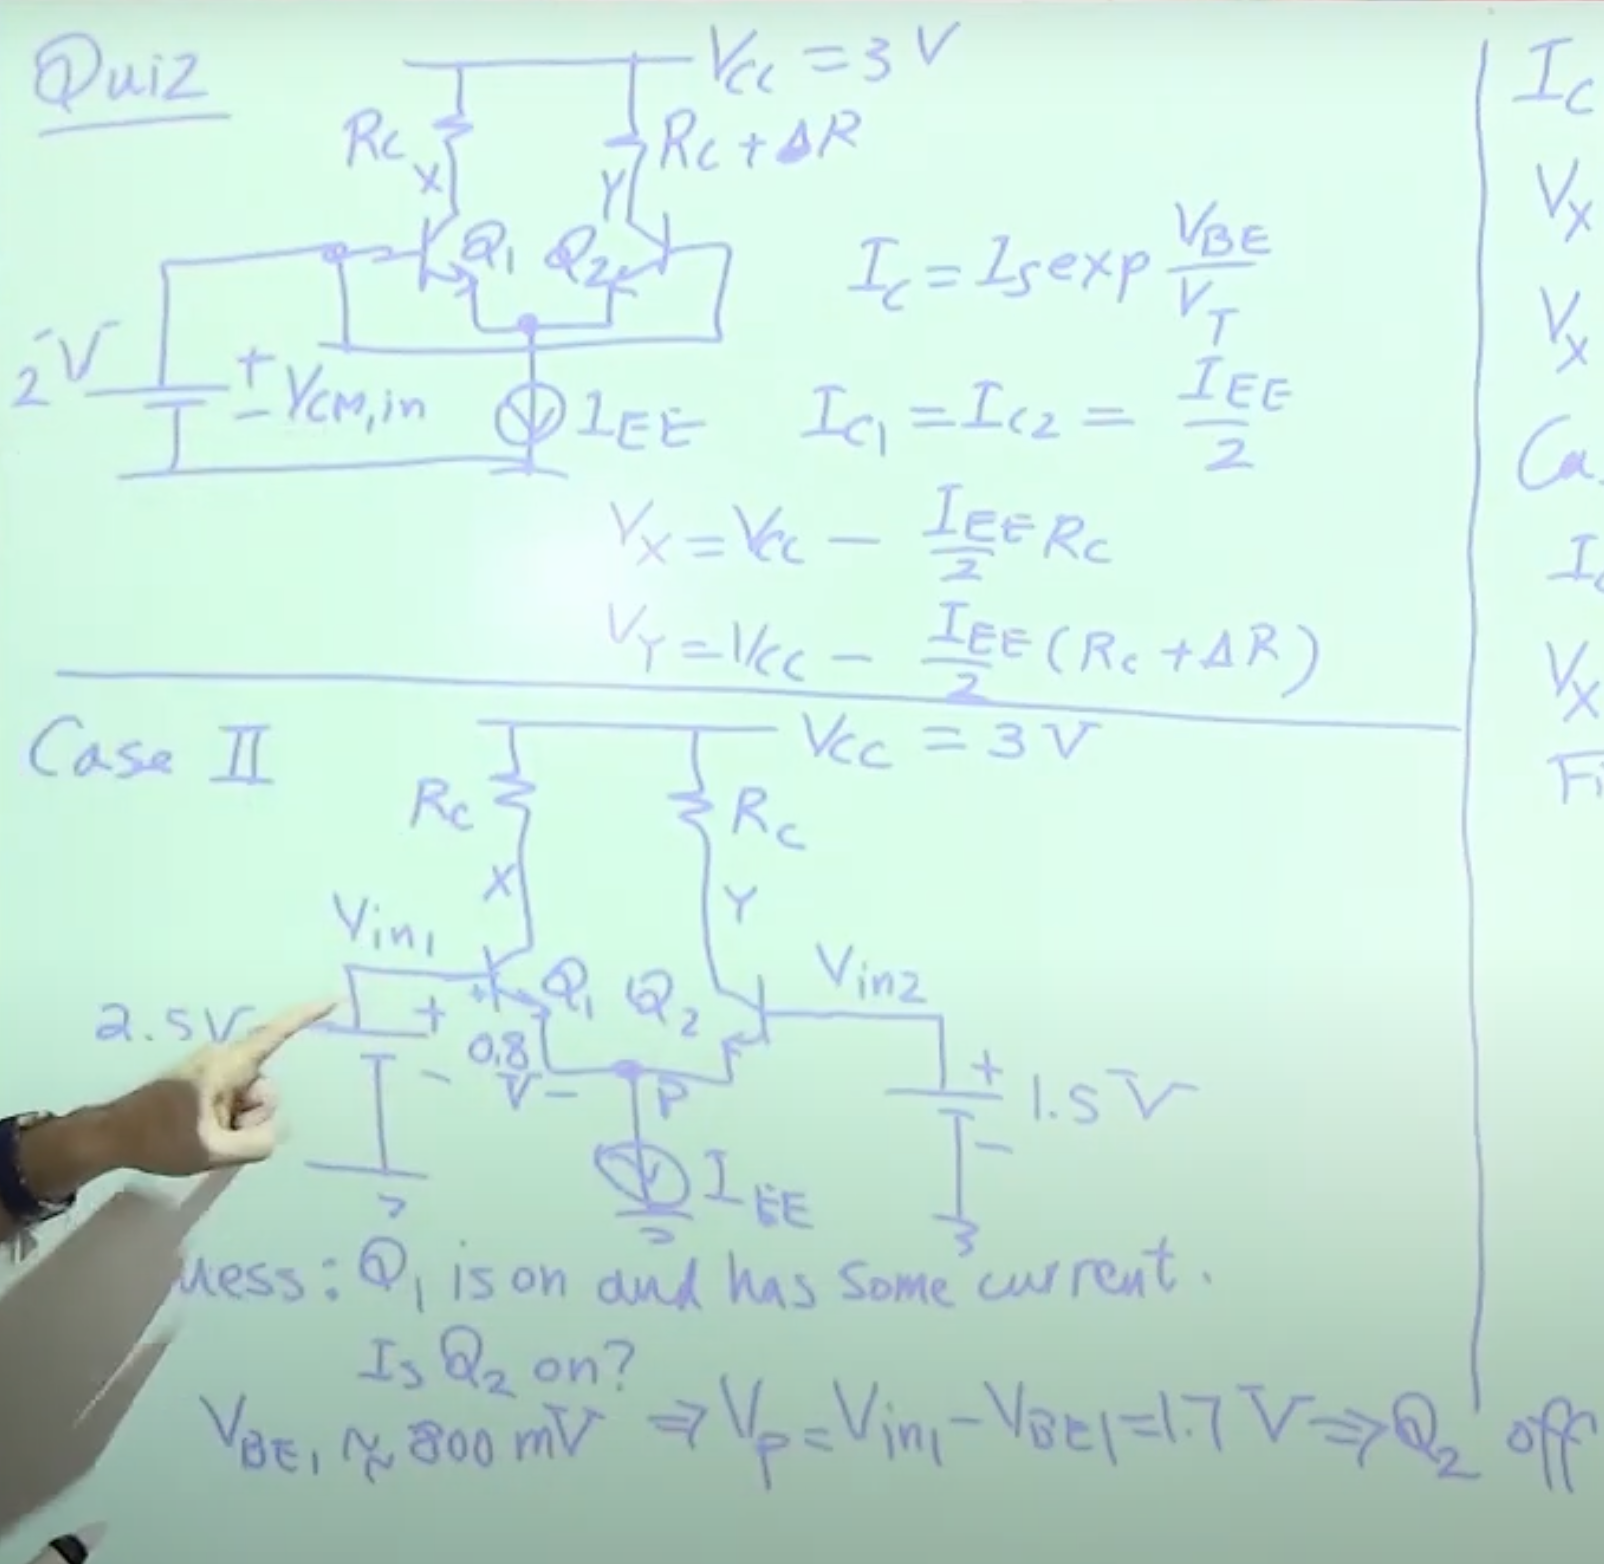 Quiz
VCC = 3 V
RC
RC + ΔR
X
Y
Q1 Q2
2V
+
- VCM,in
IEE
IC = IS exp VBE/VT
IC1 = IC2 = IEE/2
VX = VCC - IEE/2 RC
VY = VCC - IEE/2 (RC + ΔR)
Case II
VCC = 3 V
RC
RC
X
Y
Vin1
Vin2
Q1 Q2
2.5V
+
-
+
0.8
V -
P
+
-
1.5 V
IEE
uess: Q1 is on and has some current.
Is Q2 on?
VBE1 ≈ 800 mV ⇒ VP = Vin1 - VBE1 = 1.7 V ⇒ Q2 off
IC
VX
VX
Ca
VX
Fi